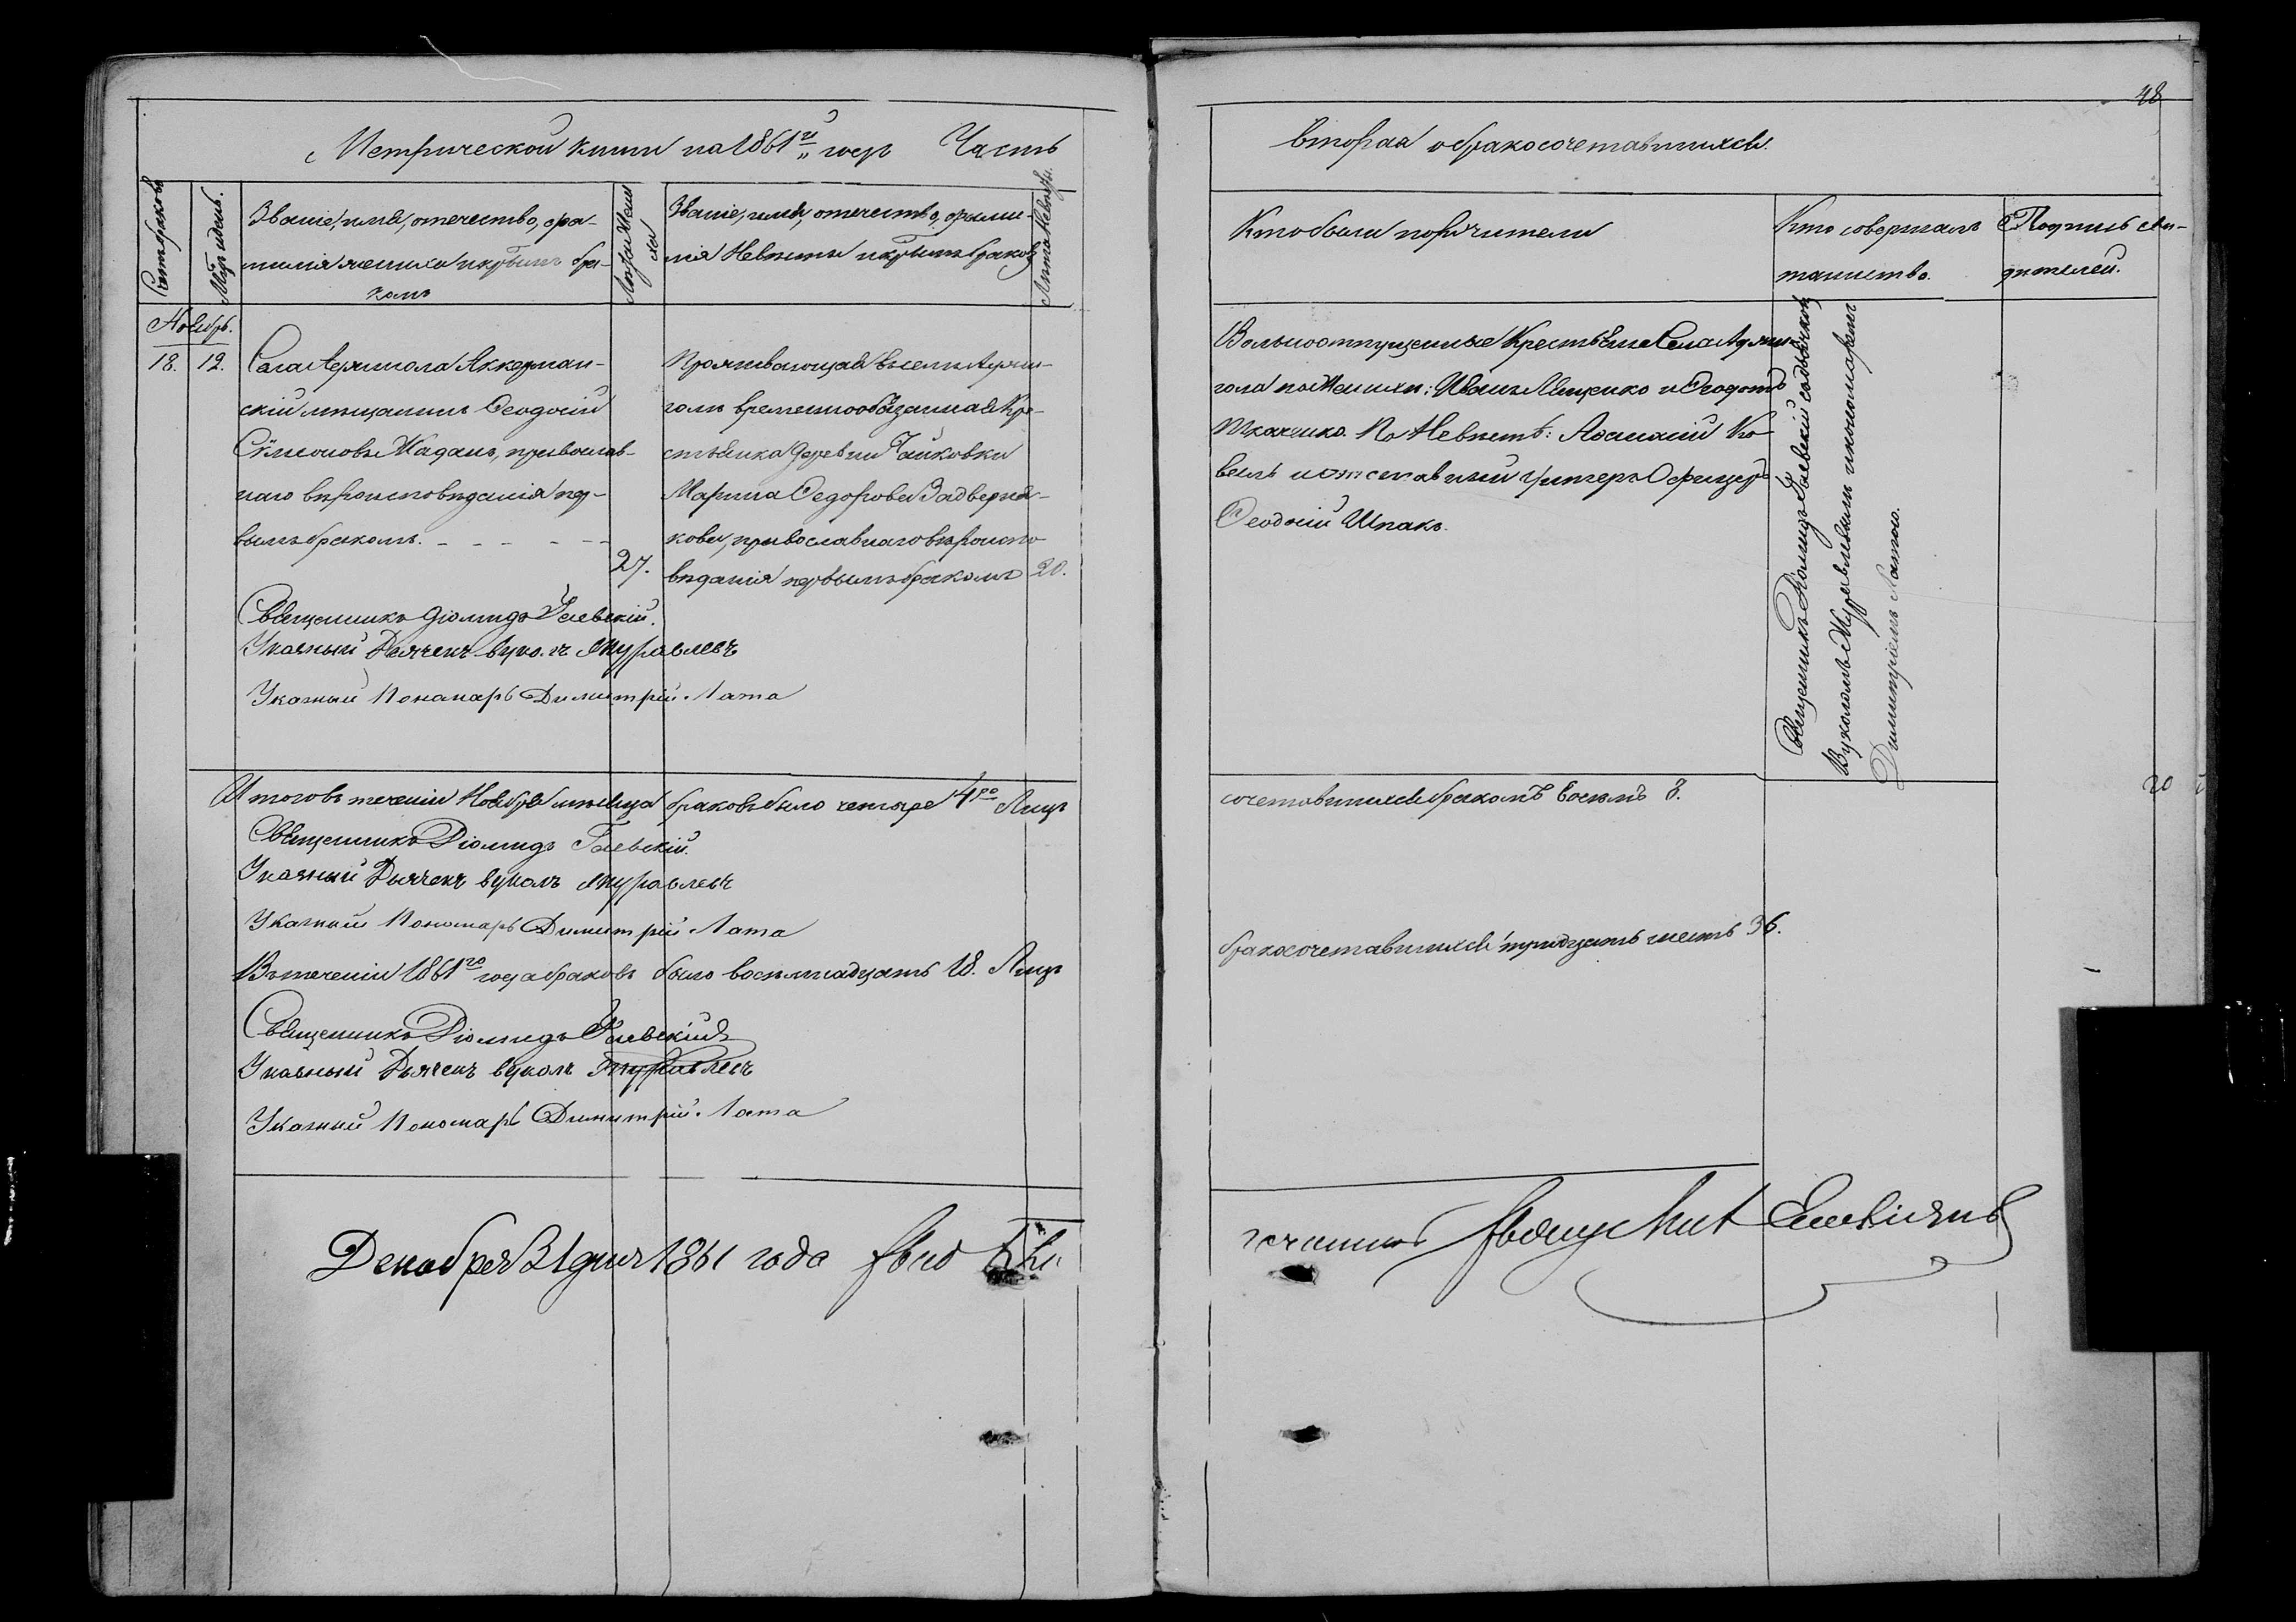 48
Метрической книги на 1861й годъ Часть
вторая о бракосочетавшихся.
Счетъ браковъ
Мѣс. и день.
Званіе, имя, отечество, фа-
милія жениха и которымъ бра-
комъ
Лѣта Жени-
ха
Званіе, имя, отечество, фами-
лія Невѣсты и которымъ бракомъ
Лѣта Невѣсты.
Кто были поручители
Кто совершалъ
таинство.
Подпись сви-
дѣтелей.
Ноябрь.
18. 12.
Села Аджигола Аккерман-
скій мѣщанинъ Ѳеодосій
Сѵмеоновъ Жаданъ, православ-
наго вѣроисповѣданія пер-
вымъ бракомъ.
27.
Проживающая въ селѣ Аджи-
голѣ временнообязанная Кре-
стьянка деревни Чайковки
Марина Ѳедорова Задверня-
кова, православнаго вѣроиспо-
вѣданія первымъ бракомъ 20.
Вольноотпущенные Крестьяне Села Аджи-
гола по Женихѣ: Иванъ Ищенко и Ѳеодотъ
Ткаченко. По Невѣстѣ: Аѳанасій Ко-
валь и отставный Унтеръ Офицеръ
Ѳеодосій Шпакъ.
Священникъ Діомидъ Гаевскій съ дьячкомъ
Вуколомъ Журавлевымъ и пономаремъ
Димитріемъ Латою.
Священникъ Діомидъ Гаевскій.
Указный Дьячекъ Вуколъ Журавлевъ
Указный Пономарь Димитрій Лата
Итого въ теченіи Ноября мѣсяца браковъ было четыре 4ре Лицъ
сочетавшихся бракомъ восемь 8.
20
Священникъ Діомидъ Гаевскій.
Указный Дьячекъ Вуколъ Журавлевъ
Указный Пономарь Димитрій Лата
Въ теченіи 1861го года браковъ было восемнадцать 18. Лицъ
бракосочетавшихся тридцать шесть 36.
Священникъ Діомидъ Гаевскій
Указный Дьячекъ Вуколъ Журавлевъ
Указный Пономарь Димитрій Лата
Декабря 31 дня 1861 года